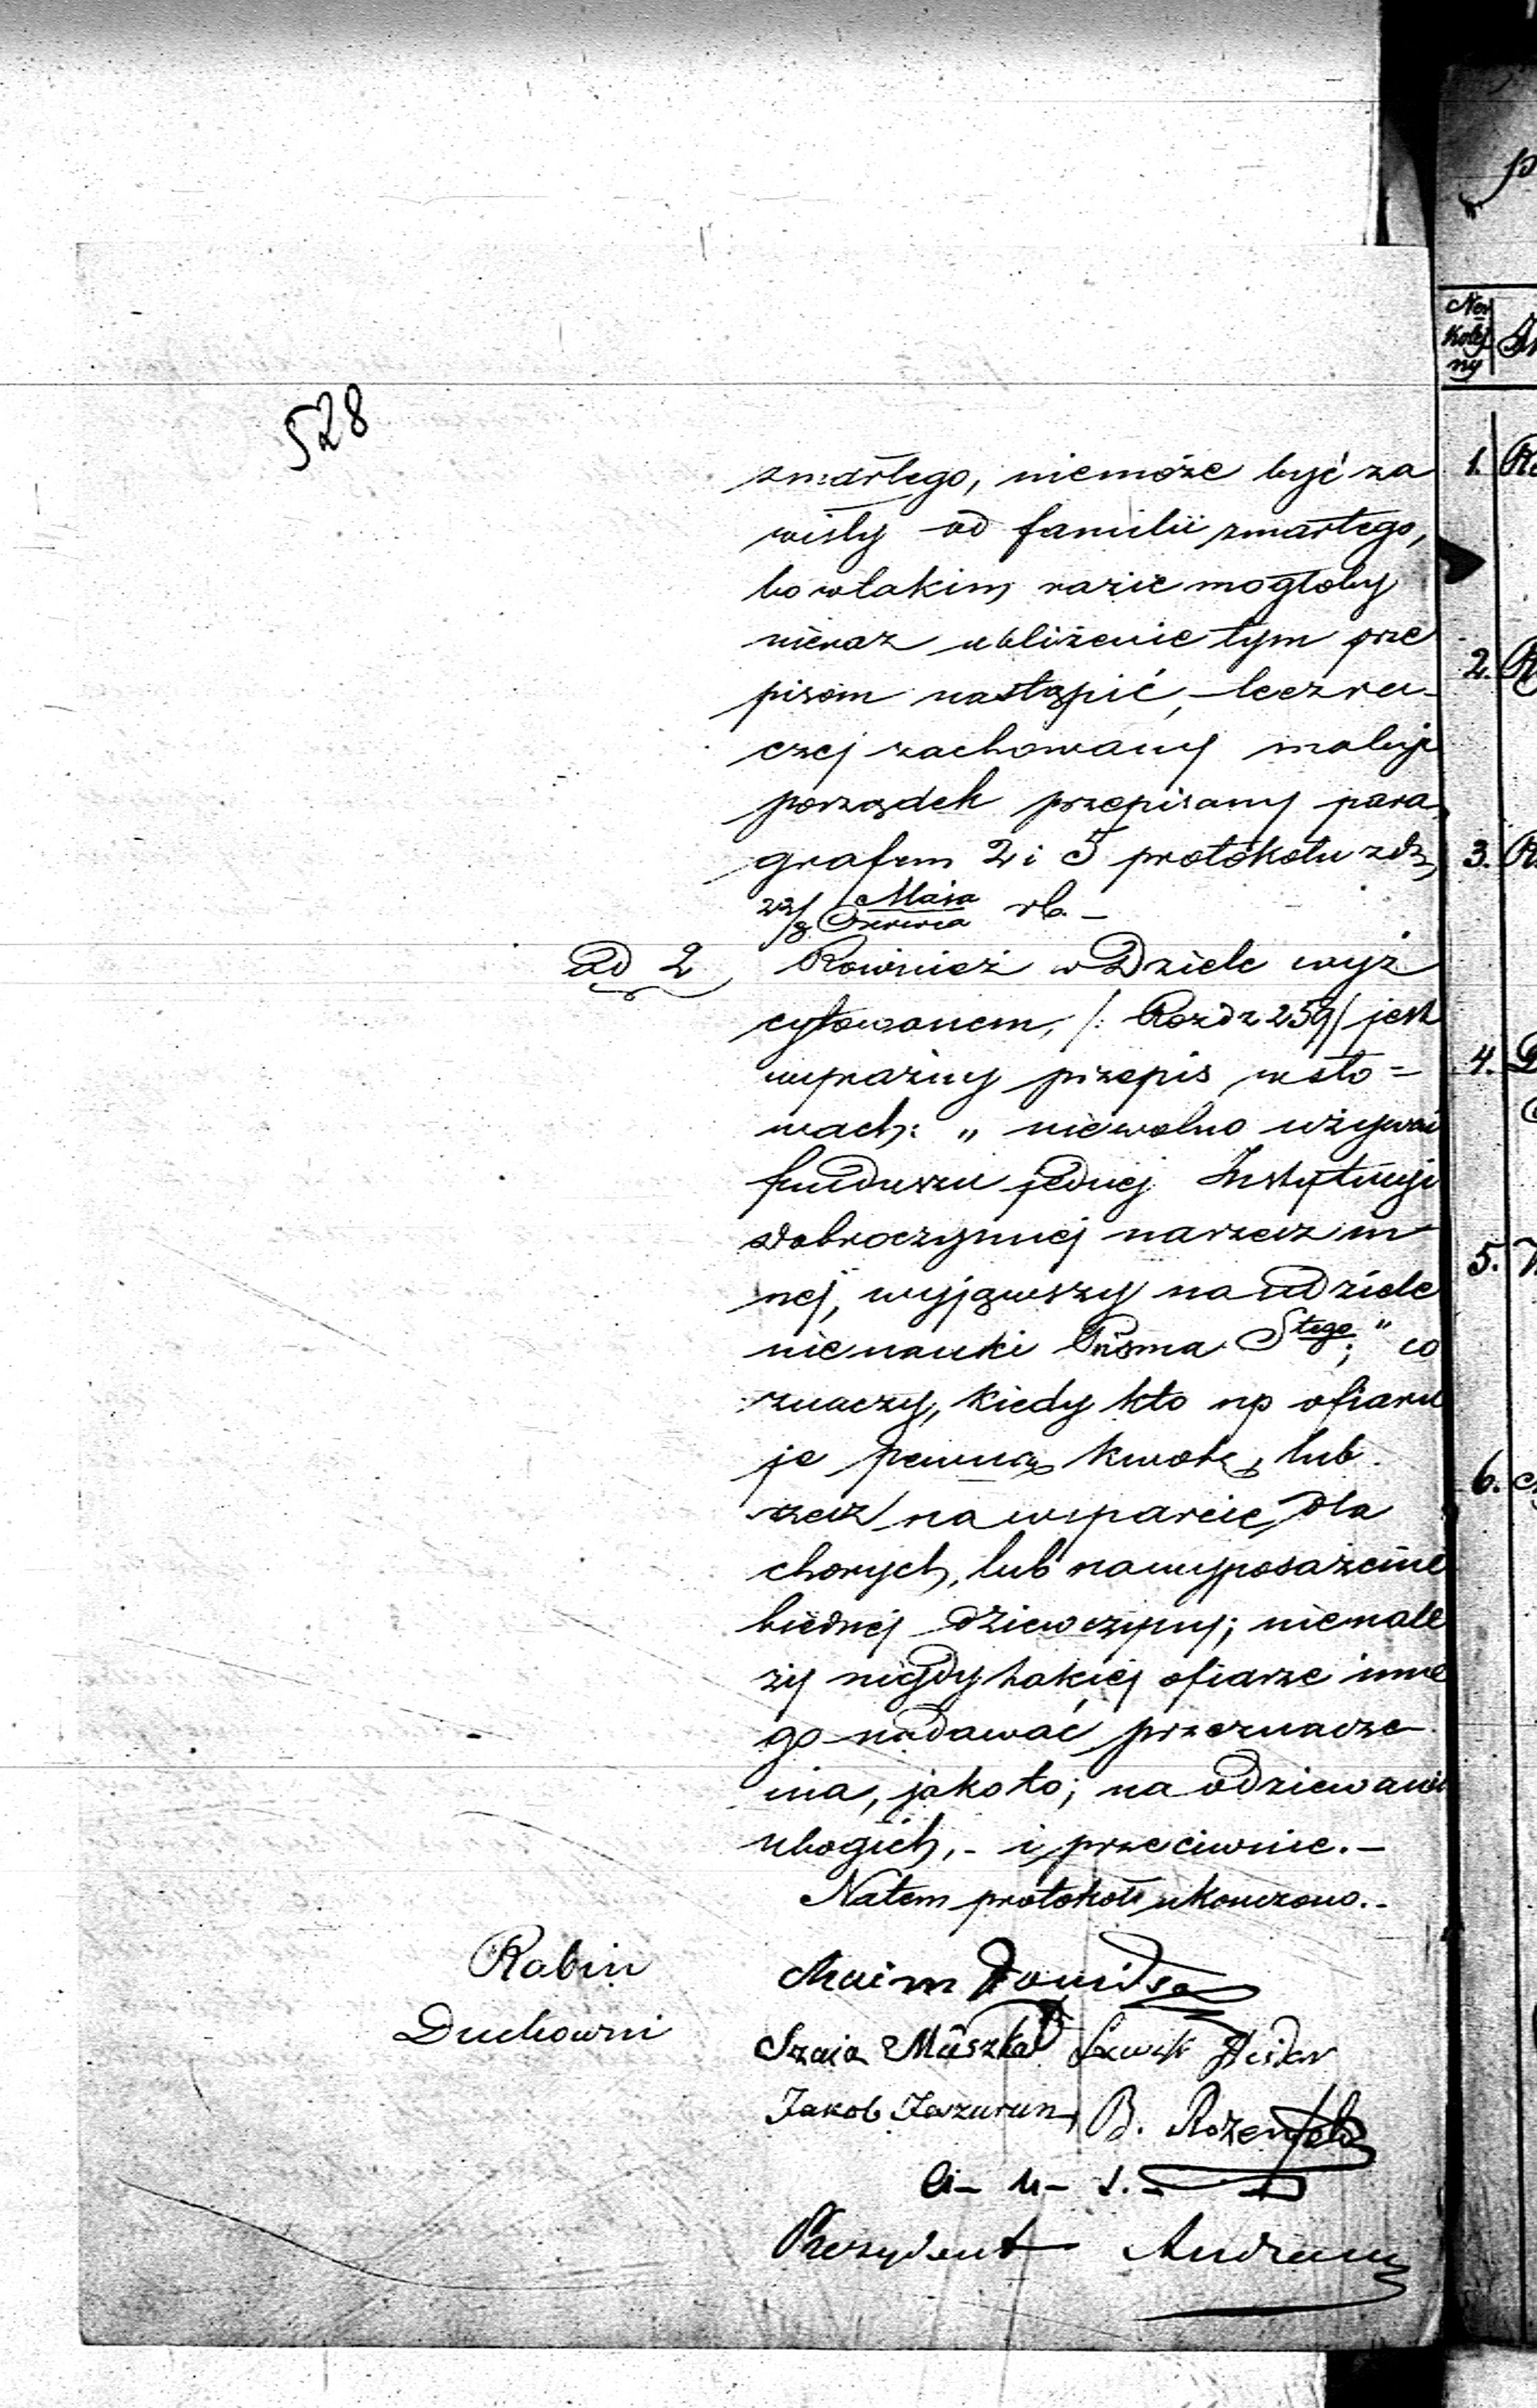 528
zmarłego, niemoże być za
wisły od familii zmarłego,
bo wtakim razie mogłoby
nieraz ubliżenie tym prze
pisom nastąpić, - lecz ra-
czej zachowany ma być
porządek przepisany para
grafem 2 i 5 protokołu z d.
22/3 Maja/Czerwca r b. -
ad 2 Rownież w Dziele wyż
cytowanem, /: Rozdz 259/ jest
wyrazny przepis w sło=
wach: „ niewolno używać
funduszu jednej Instytucyi
dobroczynnej narzecz in
nej, wyjąwszy na udziele
nie nauki Pisma Stego;" co
znaczy, kiedy kto np ofiaru
je pewną kwotę, lub
rzecz na wsparcie dla
chorych, lub na wyposażenie
biednej dziewczyny; nienale
ży nigdy takiej ofiarze inne
go nadawać przeznacze
nia, jako to; na odziewanie
ubogich, - i przeciwnie. -
Natem protokół ukończono. -
Rabin Chaim Dawidso
Duchowni Szaia Muszkat
Jakob B. Rozenfeld
Prezydent
Nor
kolej
ny
1.
2.
3.
4.
5.
6.